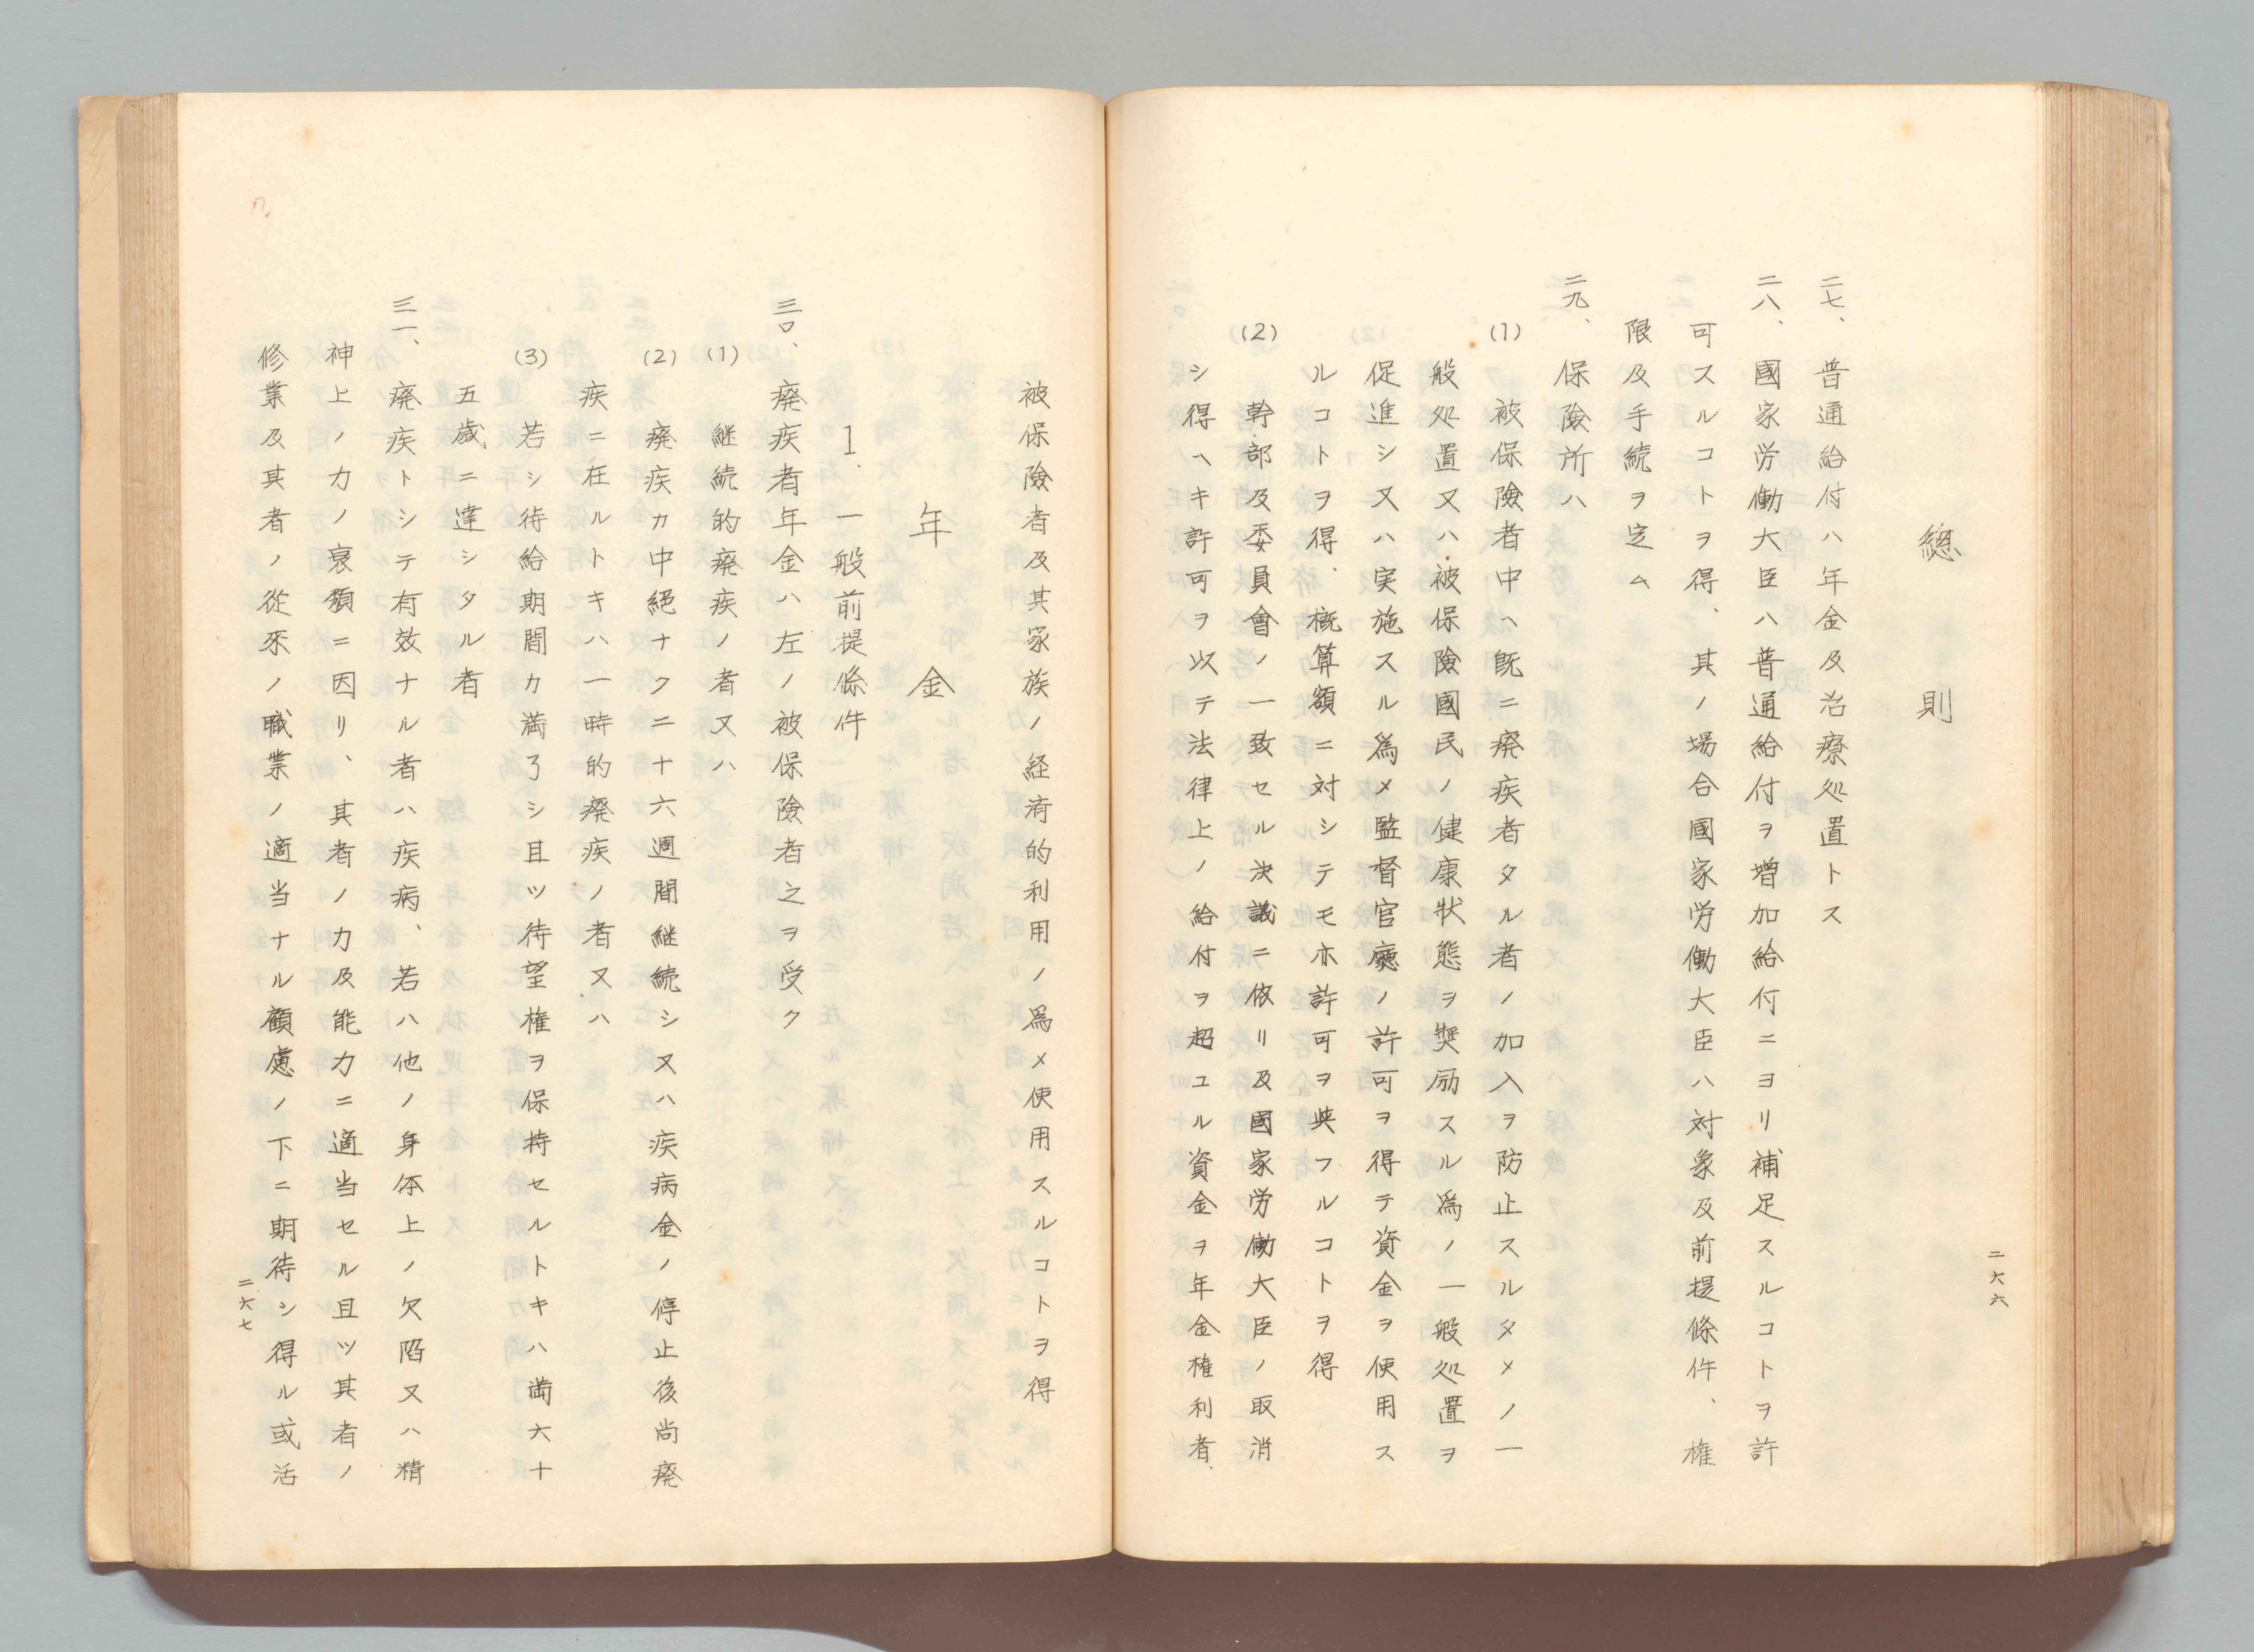 總則
二七、普通給付ハ年金及治療処置トス
二八、國家労働大臣ハ普通給付ヲ増加給付ニヨリ補足スルコトヲ許
可スルコトヲ得、其ノ場合國家労働大臣ハ対象及前提條件、権
限及手続ヲ定ム
二九、保險所ハ
(1) 被保險者中ヘ既ニ癈疾者タル者ノ加入ヲ防止スルタメノ一
般処置又ハ被保險國民ノ健康状態ヲ奬励スル爲ノ一般処置ヲ
促進シ又ハ実施スル爲メ監督官廳ノ許可ヲ得テ資金ヲ使用ス
ルコトヲ得、概算額ニ対シテモ亦許可ヲ與フルコトヲ得
(2) 幹部及委員會ノ一致セル決議ニ依リ及國家労働大臣ノ取消
シ得ヘキ許可ヲ以テ法律上ノ給付ヲ超ユル資金ヲ年金権利者
二六六
被保險者及其家族ノ経済的利用ノ爲メ使用スルコトヲ得
年金
1. 一般前提條件
三〇、癈疾者年金ハ左ノ被保險者之ヲ受ク
(1) 継続的癈疾ノ者又ハ
(2) 癈疾カ中絕ナク二十六週間継続シ又ハ疾病金ノ停止後尚癈
疾ニ在ルトキハ一時的癈疾ノ者又ハ
(3) 若シ待給期間カ満了シ且ツ待望権ヲ保持セルトキハ満六十
五歳ニ達シタル者
三一、癈疾トシテ有效ナル者ハ疾病、若ハ他ノ身体上ノ欠陥又ハ精
神上ノ力ノ衰頽ニ因リ、其者ノ力及能力ニ適当セル且ツ其者ノ
修業及其者ノ從來ノ職業ノ適当ナル顧慮ノ下ニ期待シ得ル或活
二六七